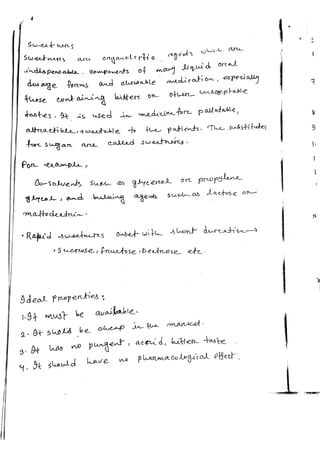 Sweetners
Sweetners are organoleptic agents which are
indispensable components of many liquid oral
dosage forms and chewable medication, especially
those containing bitters or other unacceptable
tastes. It is used in medicine for palatable,
attractible, sweetable to the patients. The substitutes
for sugar are called sweetners.
For example,
Co-solvents such as glycerol or propylene
glycol, and bulking agents such as lactose or
maltodextrin.
• Rapid sweetners onset with short duration→
• Sucrose, fructose, dextrose etc.
Ideal Properties:
1. It must be available.
2. It should be cheap in the market.
3. It has no pungent, acrid, bitter taste
4. It should have no pharmacological effect.